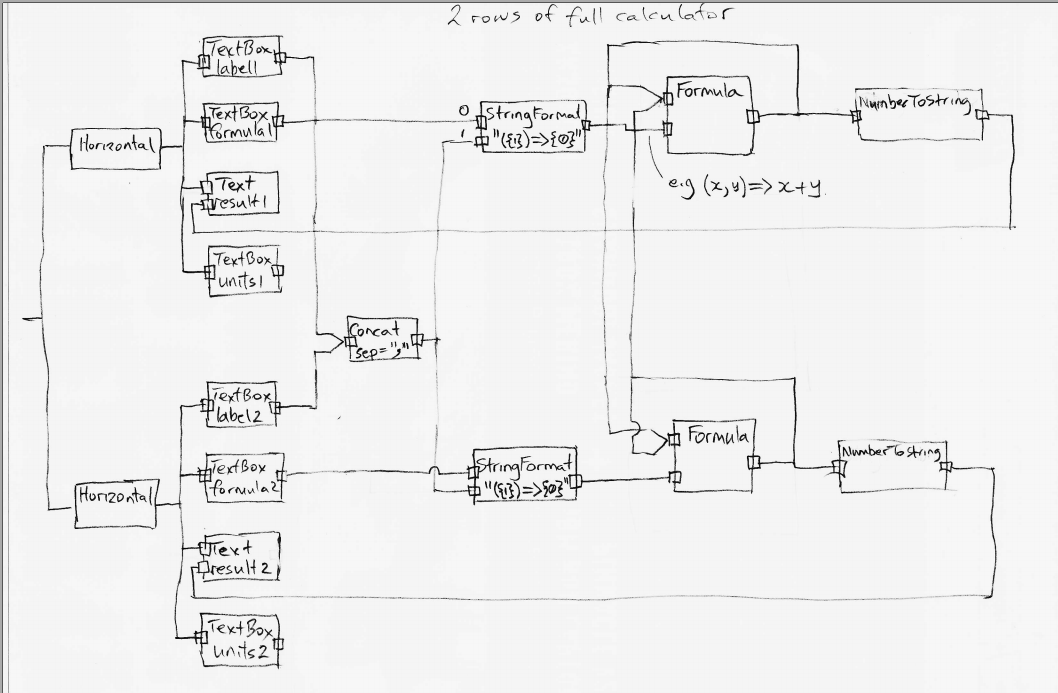 2 rows of full calculator
TextBox
label1
TextBox
formula1
Horizontal
Text
result1
TextBox
units1
0
1
StringFormat
"({1})=>{0}"
Formula
NumberToString
e.g (x,y)=>x+y
Concat
sep=","
TextBox
label2
TextBox
formula2
Horizontal
Text
result2
TextBox
units2
StringFormat
"({1})=>{0}"
Formula
NumberToString